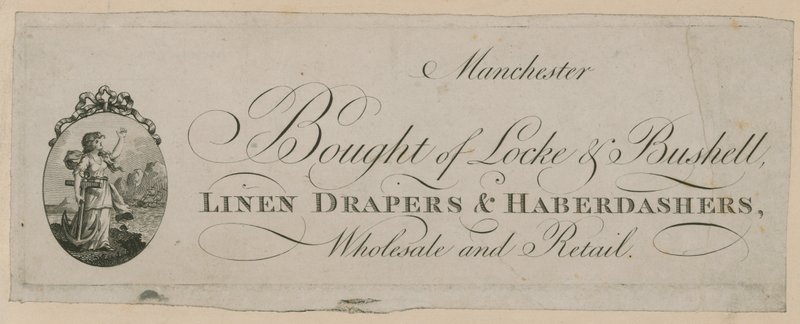 Manchester
Bought of Locke & Bushell,
LINEN DRAPERS & HABERDASHERS,
Wholesale and Retail.